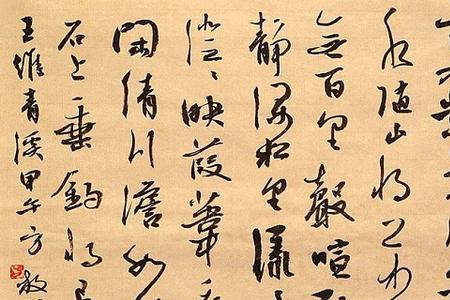 水隨山將万
無百里聲喧
靜深松里漾
澄〻映葭葦
閑清川澹如
石上垂釣將已
王維青溪甲午方